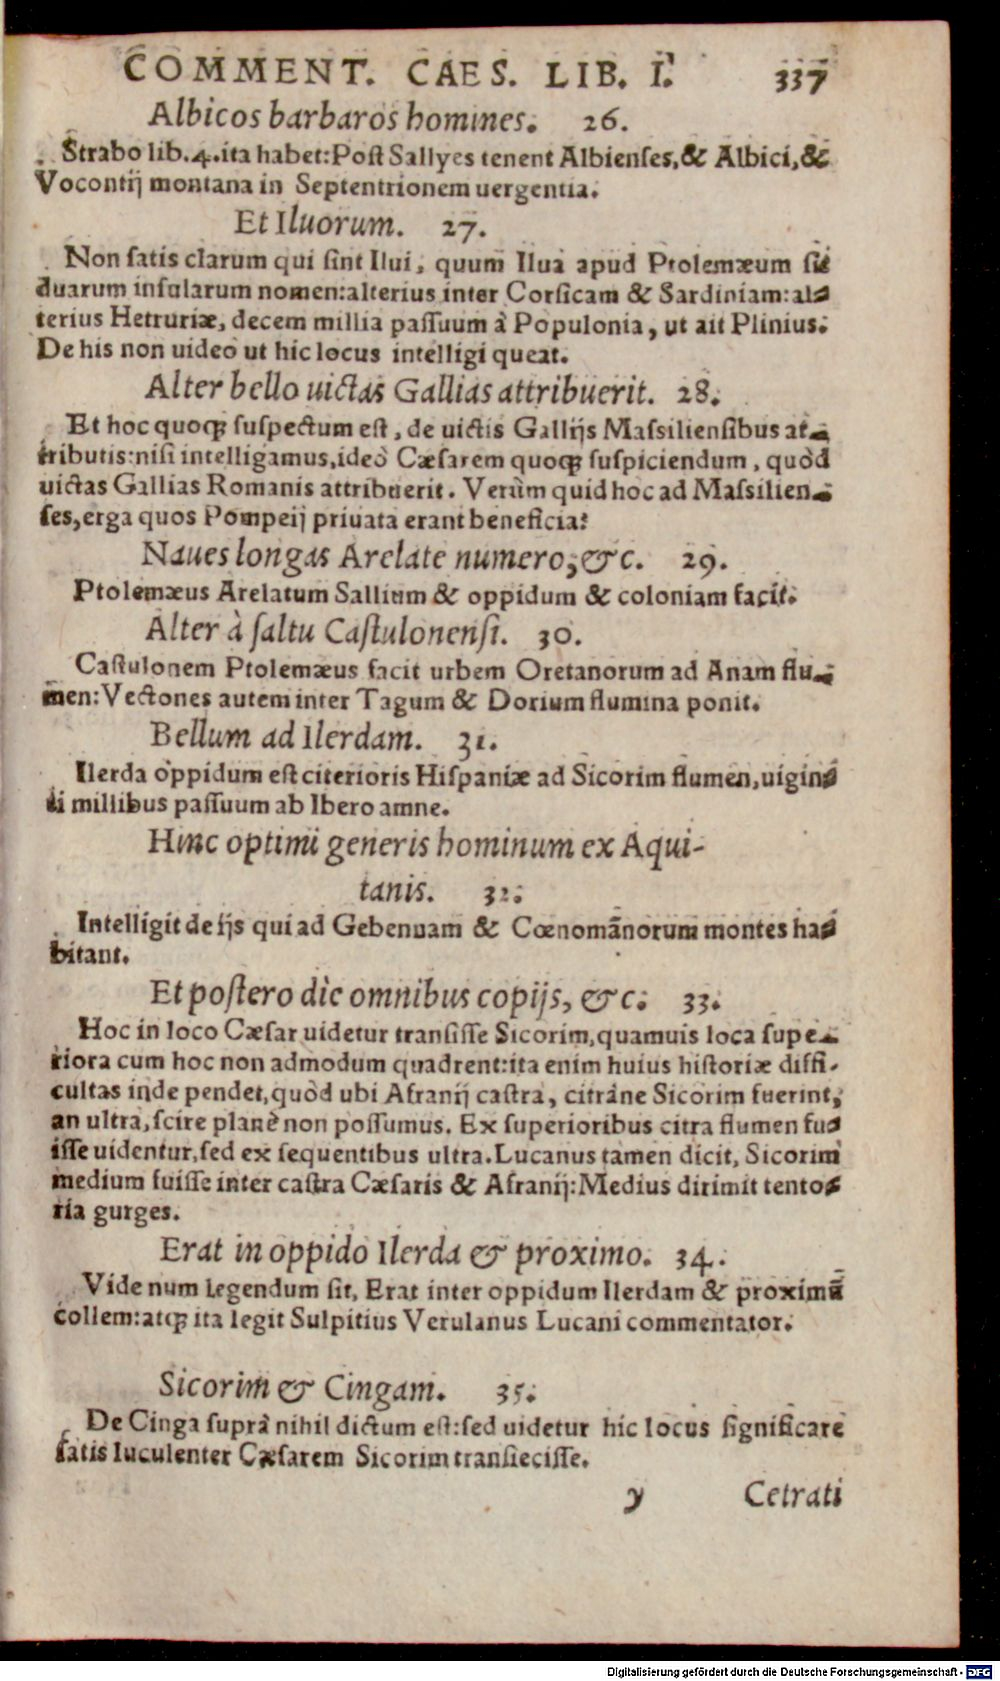 COMMENT. CAES. LIB. I. 337
Albicos barbaros homines. 26.
Strabo lib. 4. ita habet: Post Sallyes tenent Albienses, & Albici, &
Vocontij montana in Septentrionem uergentia.
Et Iluorum. 27.
Non satis clarum qui sint Ilui, quum Ilua apud Ptolemæum sit
duarum insularum nomen: alterius inter Corsicam & Sardiniam: al-
terius Hetruriæ, decem millia passuum à Populonia, ut ait Plinius.
De his non uideo ut hic locus intelligi queat.
Alter bello uictas Gallias attribuerit. 28.
Et hoc quoqꝫ suspectum est, de uictis Gallijs Massiliensibus at-
tributis: nisi intelligamus, ideo Cæsarem quoqꝫ suspiciendum, quòd
uictas Gallias Romanis attribuerit. Verùm quid hoc ad Massilien-
ses, erga quos Pompeij priuata erant beneficia?
Naues longas Arelate numero, &c. 29.
Ptolemæus Arelatum Sallium & oppidum & coloniam facit.
Alter à saltu Castulonensi. 30.
Castulonem Ptolemæus facit urbem Oretanorum ad Anam flu-
men: Vectones autem inter Tagum & Dorium flumina ponit.
Bellum ad Ilerdam. 31.
Ilerda oppidum est citerioris Hispaniæ ad Sicorim flumen, uigin-
ti millibus passuum ab Ibero amne.
Hinc optimi generis hominum ex Aqui-
tanis. 32.
Intelligit de ijs qui ad Gebennam & Cœnomanorum montes ha-
bitant.
Et postero die omnibus copijs, &c. 33.
Hoc in loco Cæsar uidetur transisse Sicorim, quamuis loca supe-
riora cum hoc non admodum quadrent: ita enim huius historiæ diffi-
cultas inde pendet, quòd ubi Afranij castra, citrane Sicorim fuerint,
an ultra, scire planè non possumus. Ex superioribus citra flumen fu-
isse uidentur, sed ex sequentibus ultra. Lucanus tamen dicit, Sicorim
medium fuisse inter castra Cæsaris & Afranij: Medius dirimit tento-
ria gurges.
Erat in oppido Ilerda & proximo. 34.
Vide num legendum sit, Erat inter oppidum Ilerdam & proximū
collem: atqꝫ ita legit Sulpitius Verulanus Lucani commentator.
Sicorim & Cingam. 35.
De Cinga suprà nihil dictum est: sed uidetur hic locus significare
satis luculenter Cæsarem Sicorim transiecisse.
y Cetrati
Digitalisierung gefördert durch die Deutsche Forschungsgemeinschaft - DFG